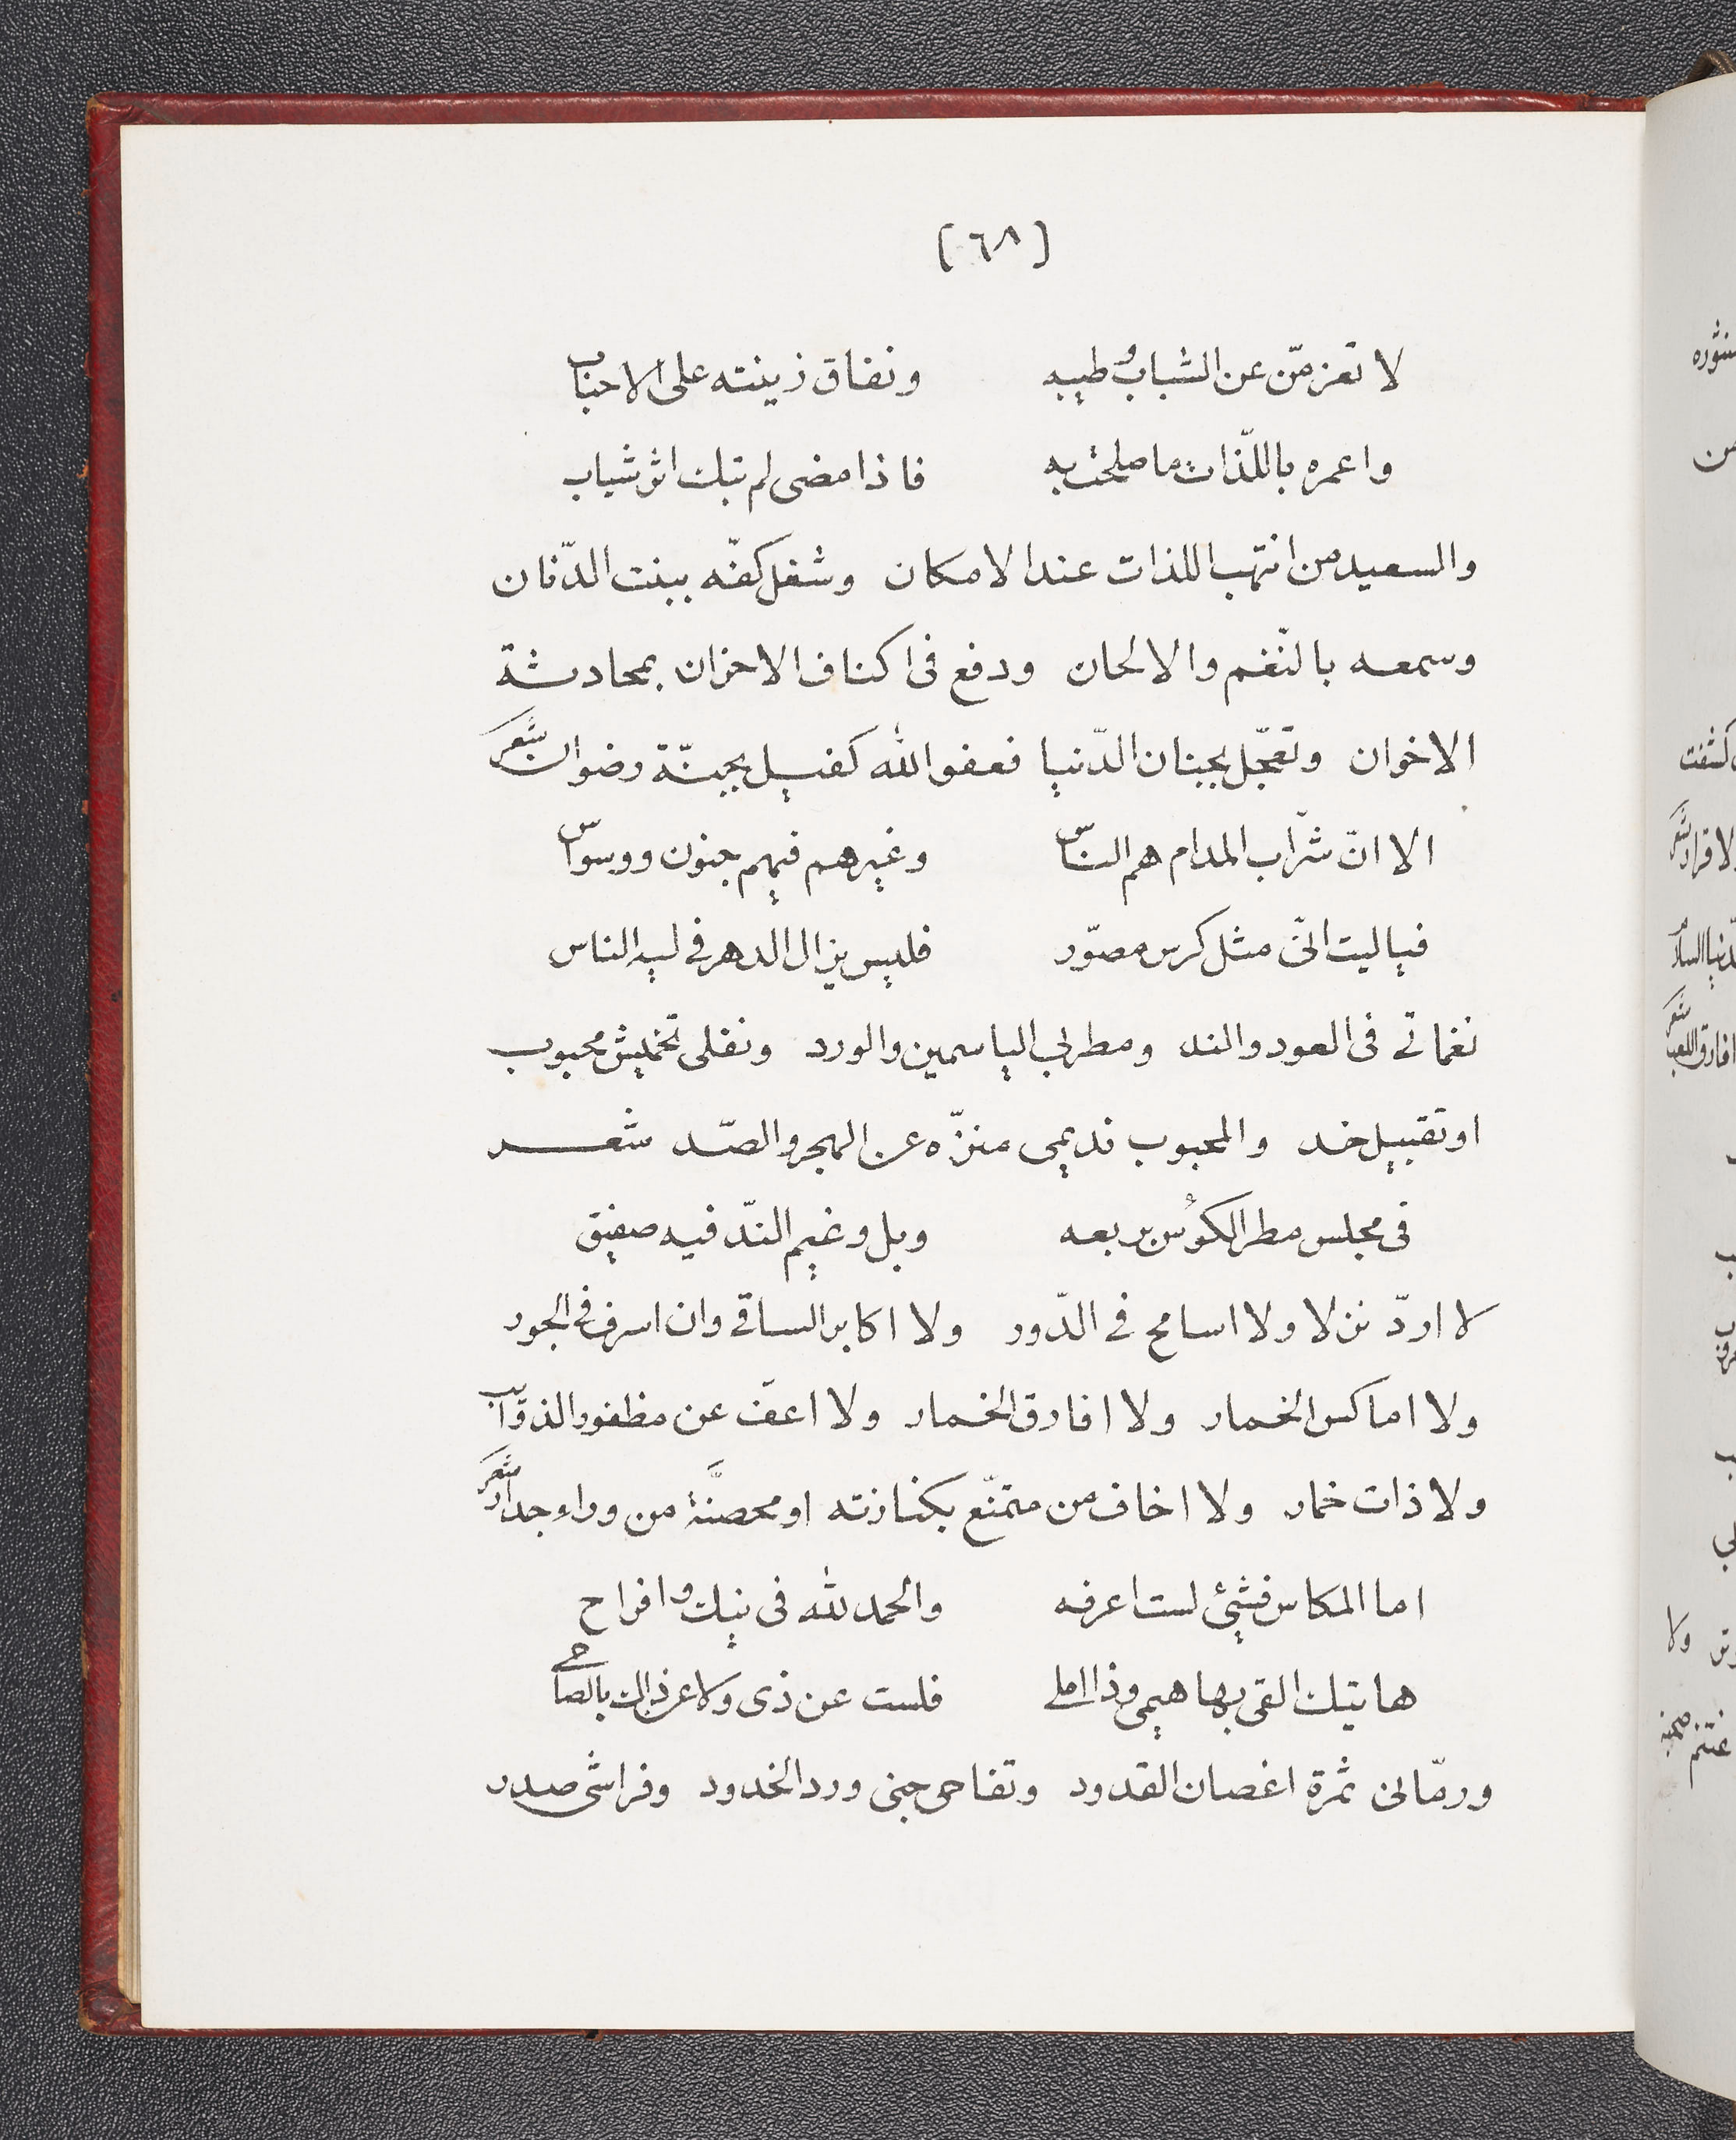 [٦٨]
لا تعزمّن عن الشباب وطيبه ونفاق زينته على الاحباب
واعمره باللّذات ما صلحت به فاذا مضى لم تبك اثر شباب
والسعيد من انتهب اللذات عند الامكان وشغل كفّه ببنت الدّنان
وسمعه بالنّغم والالحان ودفع فى اكناف الاحزان بمحادثة
الاخوان وتعجّل بجنان الدّنيا فعفو الله كفيل بجنّة رضوان شعر
الا انّ شرّاب المدام هم الناس وغيرهم فيهم جنون ووسواس
فياليت انّى مثل كرس مصوّر فليس يزال الدهر فى لبه الناس
نغماتى فى العود والند ومطربى الياسمين والورد ونقلى تخميش محبوب
او تقبيل خد والمحبوب نديمى منزّه عن الهجر والصّد شعر
فى مجلس مطر الكؤس بربعه وبل وغيم النّد فيه صفيق
لا اردّ نزلا ولا اسامح فى الدّور ولا اكابر الساقى وان اسرف فى الجور
ولا اماكس الخمار ولا افارق الخمار ولا اعفّ عن مظفور الذوّائب
ولا ذات خمار ولا اخاف من متمنّع بكنازته او محصنَّة من وراء جدار شعر
اما المكاس فشئ لست اعرفه والحمد لله فى نيك وافراح
هاتيك القى بها هيمى وذا املى فلست عن ذى ولا عن ذالك بالصاحى
ورمّانى ثمرة اغصان القدود وتفاحى جنى ورد الخدود وفراشى صدر